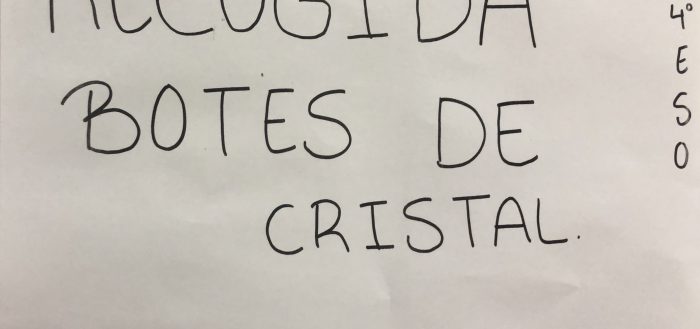 RECOGIDA
BOTES DE
CRISTAL.
4º
E
S
O